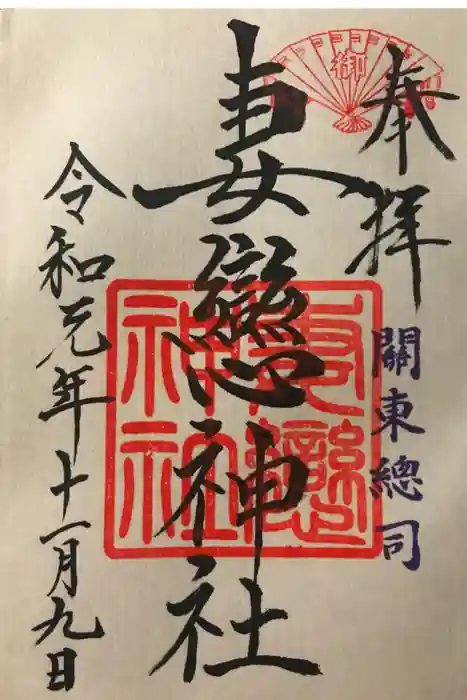 奉拝
關東總司
妻戀神社
令和元年十一月九日
御
妻戀
神社